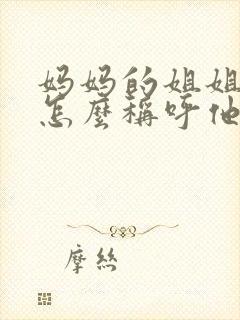 妈妈的姐姐
怎麼稱呼他
摩丝